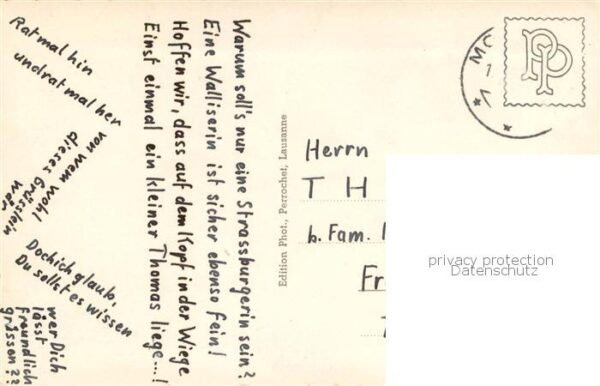 Rat mal hin
und rat mal her
von wem wohl
dieses Grüsslein
wär
Doch ich glaub,
Du sollst es wissen
wer Dich
lässt
freundlich
grüssen??
Warum soll's nur eine Strassburgerin sein?
Eine Walliserin ist sicher ebenso fein!
Hoffen wir, dass auf dem Kopf in der Wiege
Einst einmal ein kleiner Thomas liege...!
Edition Phot., Perrochet, Lausanne
MO
1
PP
Herrn
T H
b. Fam.
Fr
privacy protection
Datenschutz